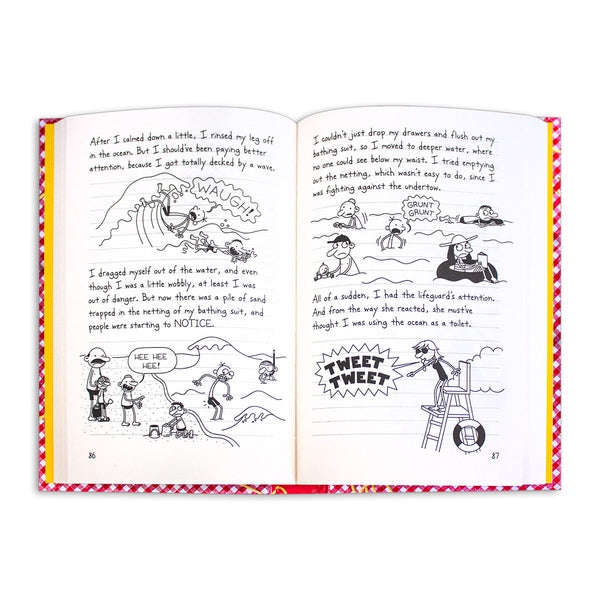 After I calmed down a little, I rinsed my leg off
in the ocean. But I should've been paying better
attention, because I got totally decked by a wave.
WAUGH!
I dragged myself out of the water, and even
though I was a little wobbly, at least I was
out of danger. But now there was a pile of sand
trapped in the netting of my bathing suit, and
people were starting to NOTICE.
HEE HEE
HEE!
86
I couldn't just drop my drawers and flush out my
bathing suit, so I moved to deeper water, where
no one could see below my waist. I tried emptying
out the netting, which wasn't easy to do, since I
was fighting against the undertow.
GRUNT
GRUNT
All of a sudden, I had the lifeguard's attention.
And from the way she reacted, she must've
thought I was using the ocean as a toilet.
TWEET
TWEET
87